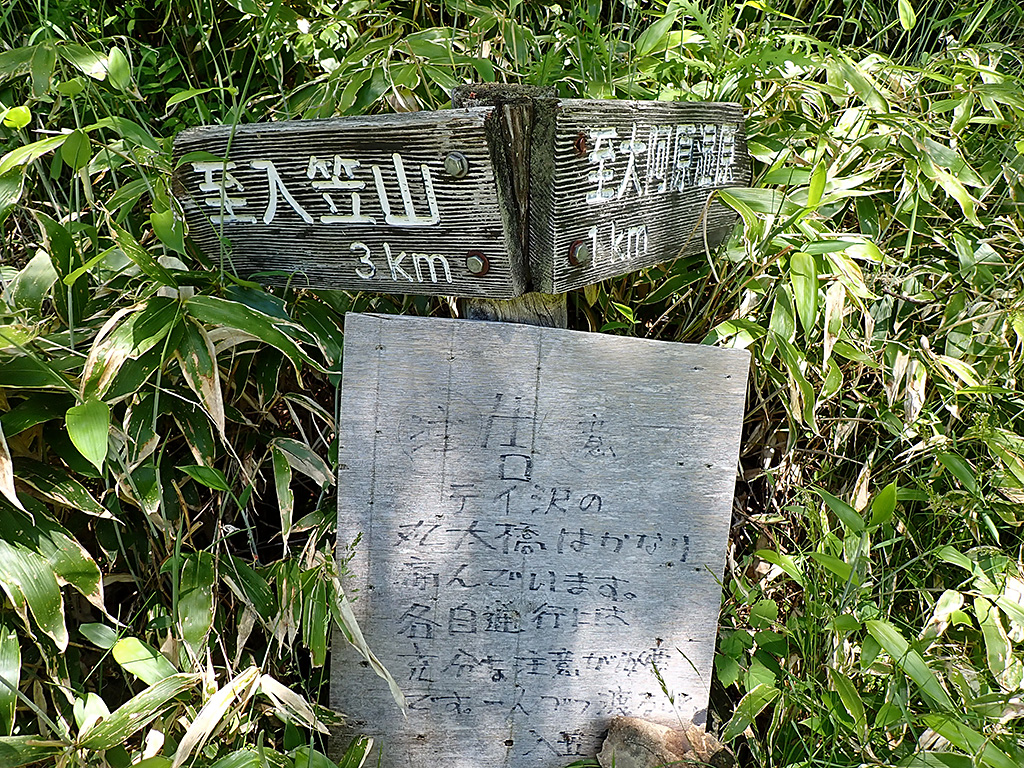 至入笠山
3km
至大阿原湿原
1km
注意
テイ沢の
丸太橋はかなり
痛んでいます。
各自通行には
充分な注意が必要
です。一人づつ渡
入笠